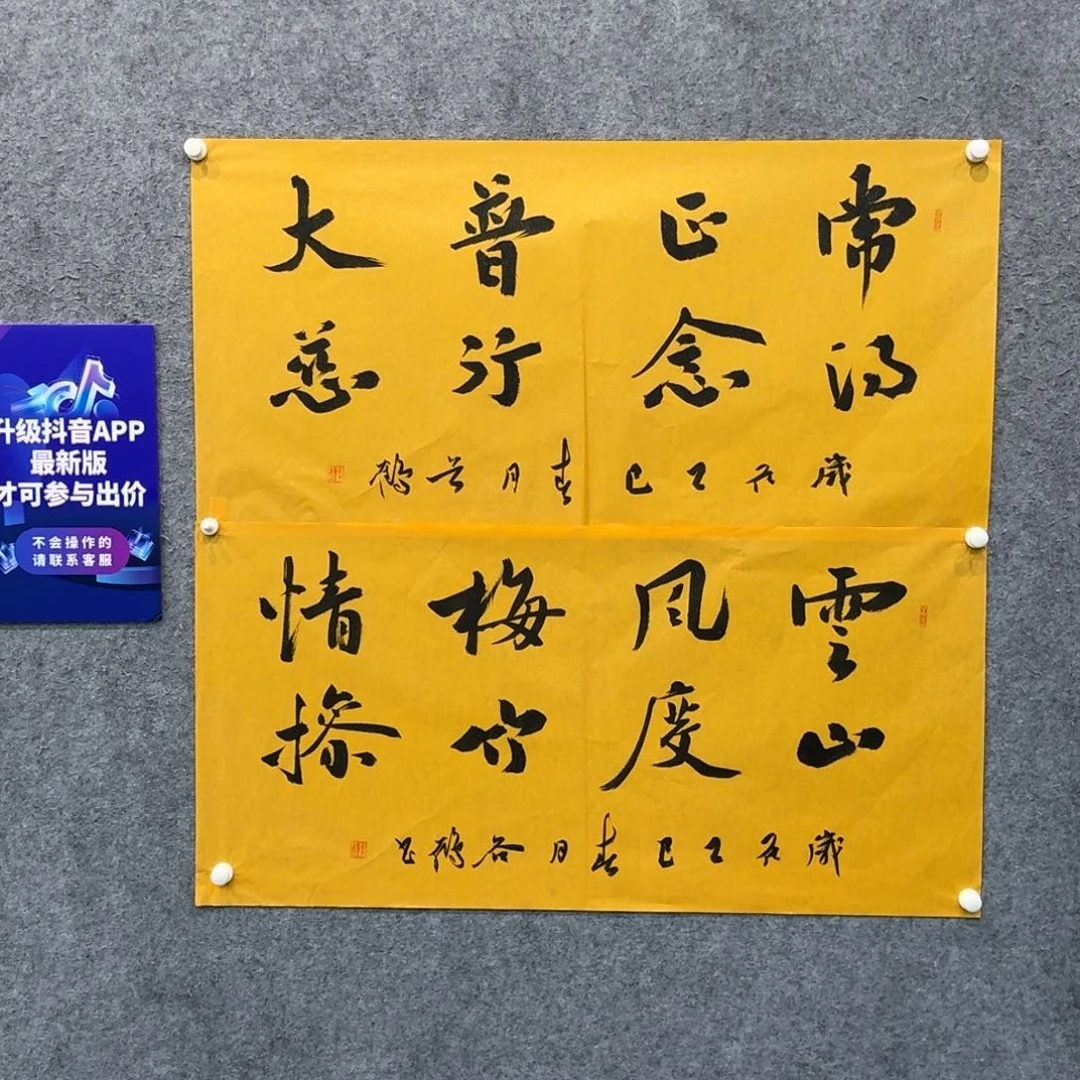 常得
正念
普行
大慈
歲在乙巳春月谷鶴
雲山
風度
梅竹
情操
歲在乙巳春月谷鶴
升级抖音APP
最新版
才可参与出价
不会操作的
请联系客服